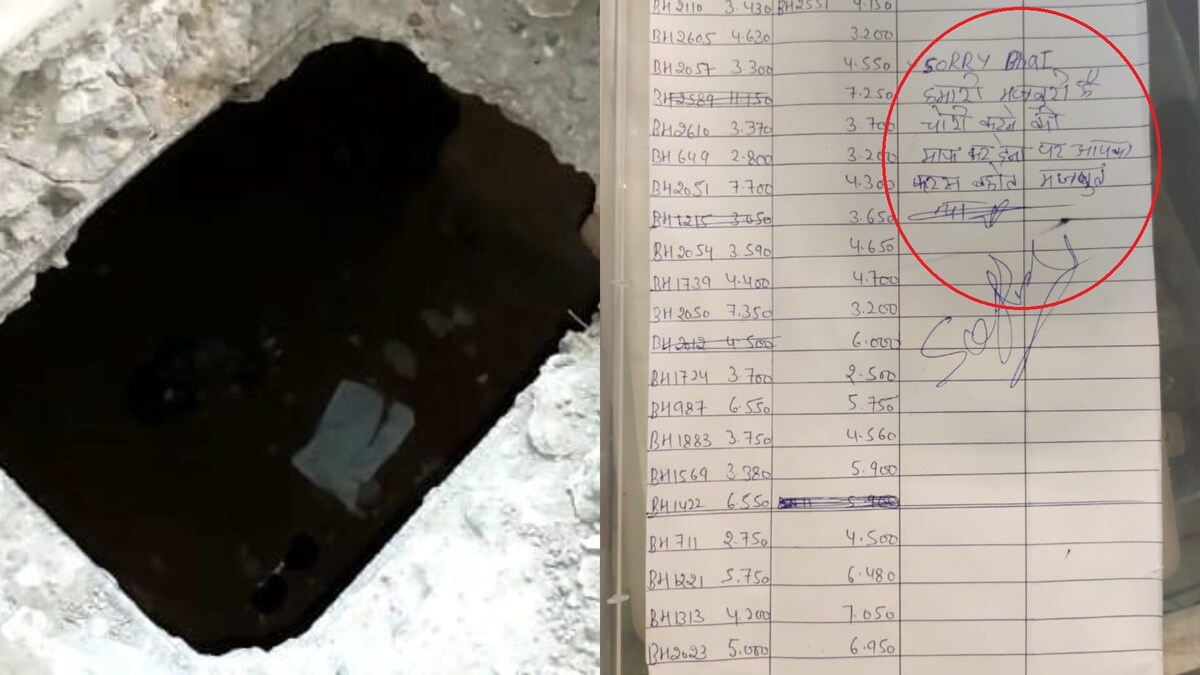 BH2110 3.430 BH2551 4.150
BH2605 4.630 3.200
BH2057 3.300 4.550 SORRY Bhai
BH2589 11.150 7.250 हमारी मजबूरी है
BH2610 3.370 3.700 चोरी करने की
BH649 2.800 3.200 माफ कर देना पर आपका
BH2051 7.700 4.300 बहोत मजबुत
BH1215 3.050 3.650 था
BH2054 3.590 4.650
BH1739 4.400 4.700
BH2050 7.350 3.200
BH2012 4.500 6.000 Sorry
BH1724 3.700 2.500
BH987 6.550 5.750
BH1883 3.750 4.560
BH1569 3.380 5.900
BH1422 6.550
BH711 2.750 4.500
BH1221 5.750 6.480
BH1313 4.200 7.050
BH2023 5.000 6.950